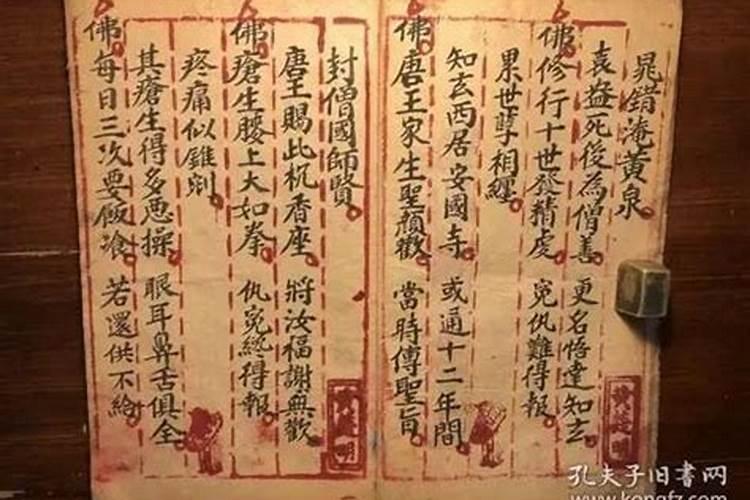 晁錯淹黃泉
袁盎死後為僧善 更名悟達知玄
佛修行十世發精虔 冤仇難得報
累世孽相纏
知玄西居安國寺 或通十二年間
佛唐王家生聖顏歡 當時傳聖旨
封僧國師賢
唐王賜此杌香座 將汝福謝無歡
佛瘡生腰上大如拳 仇冤總得報
疼痛似錐剜
其瘡生得多惡操 眼耳鼻舌俱全
佛每日三次要飯飡 若還供不給
孔夫子旧書网